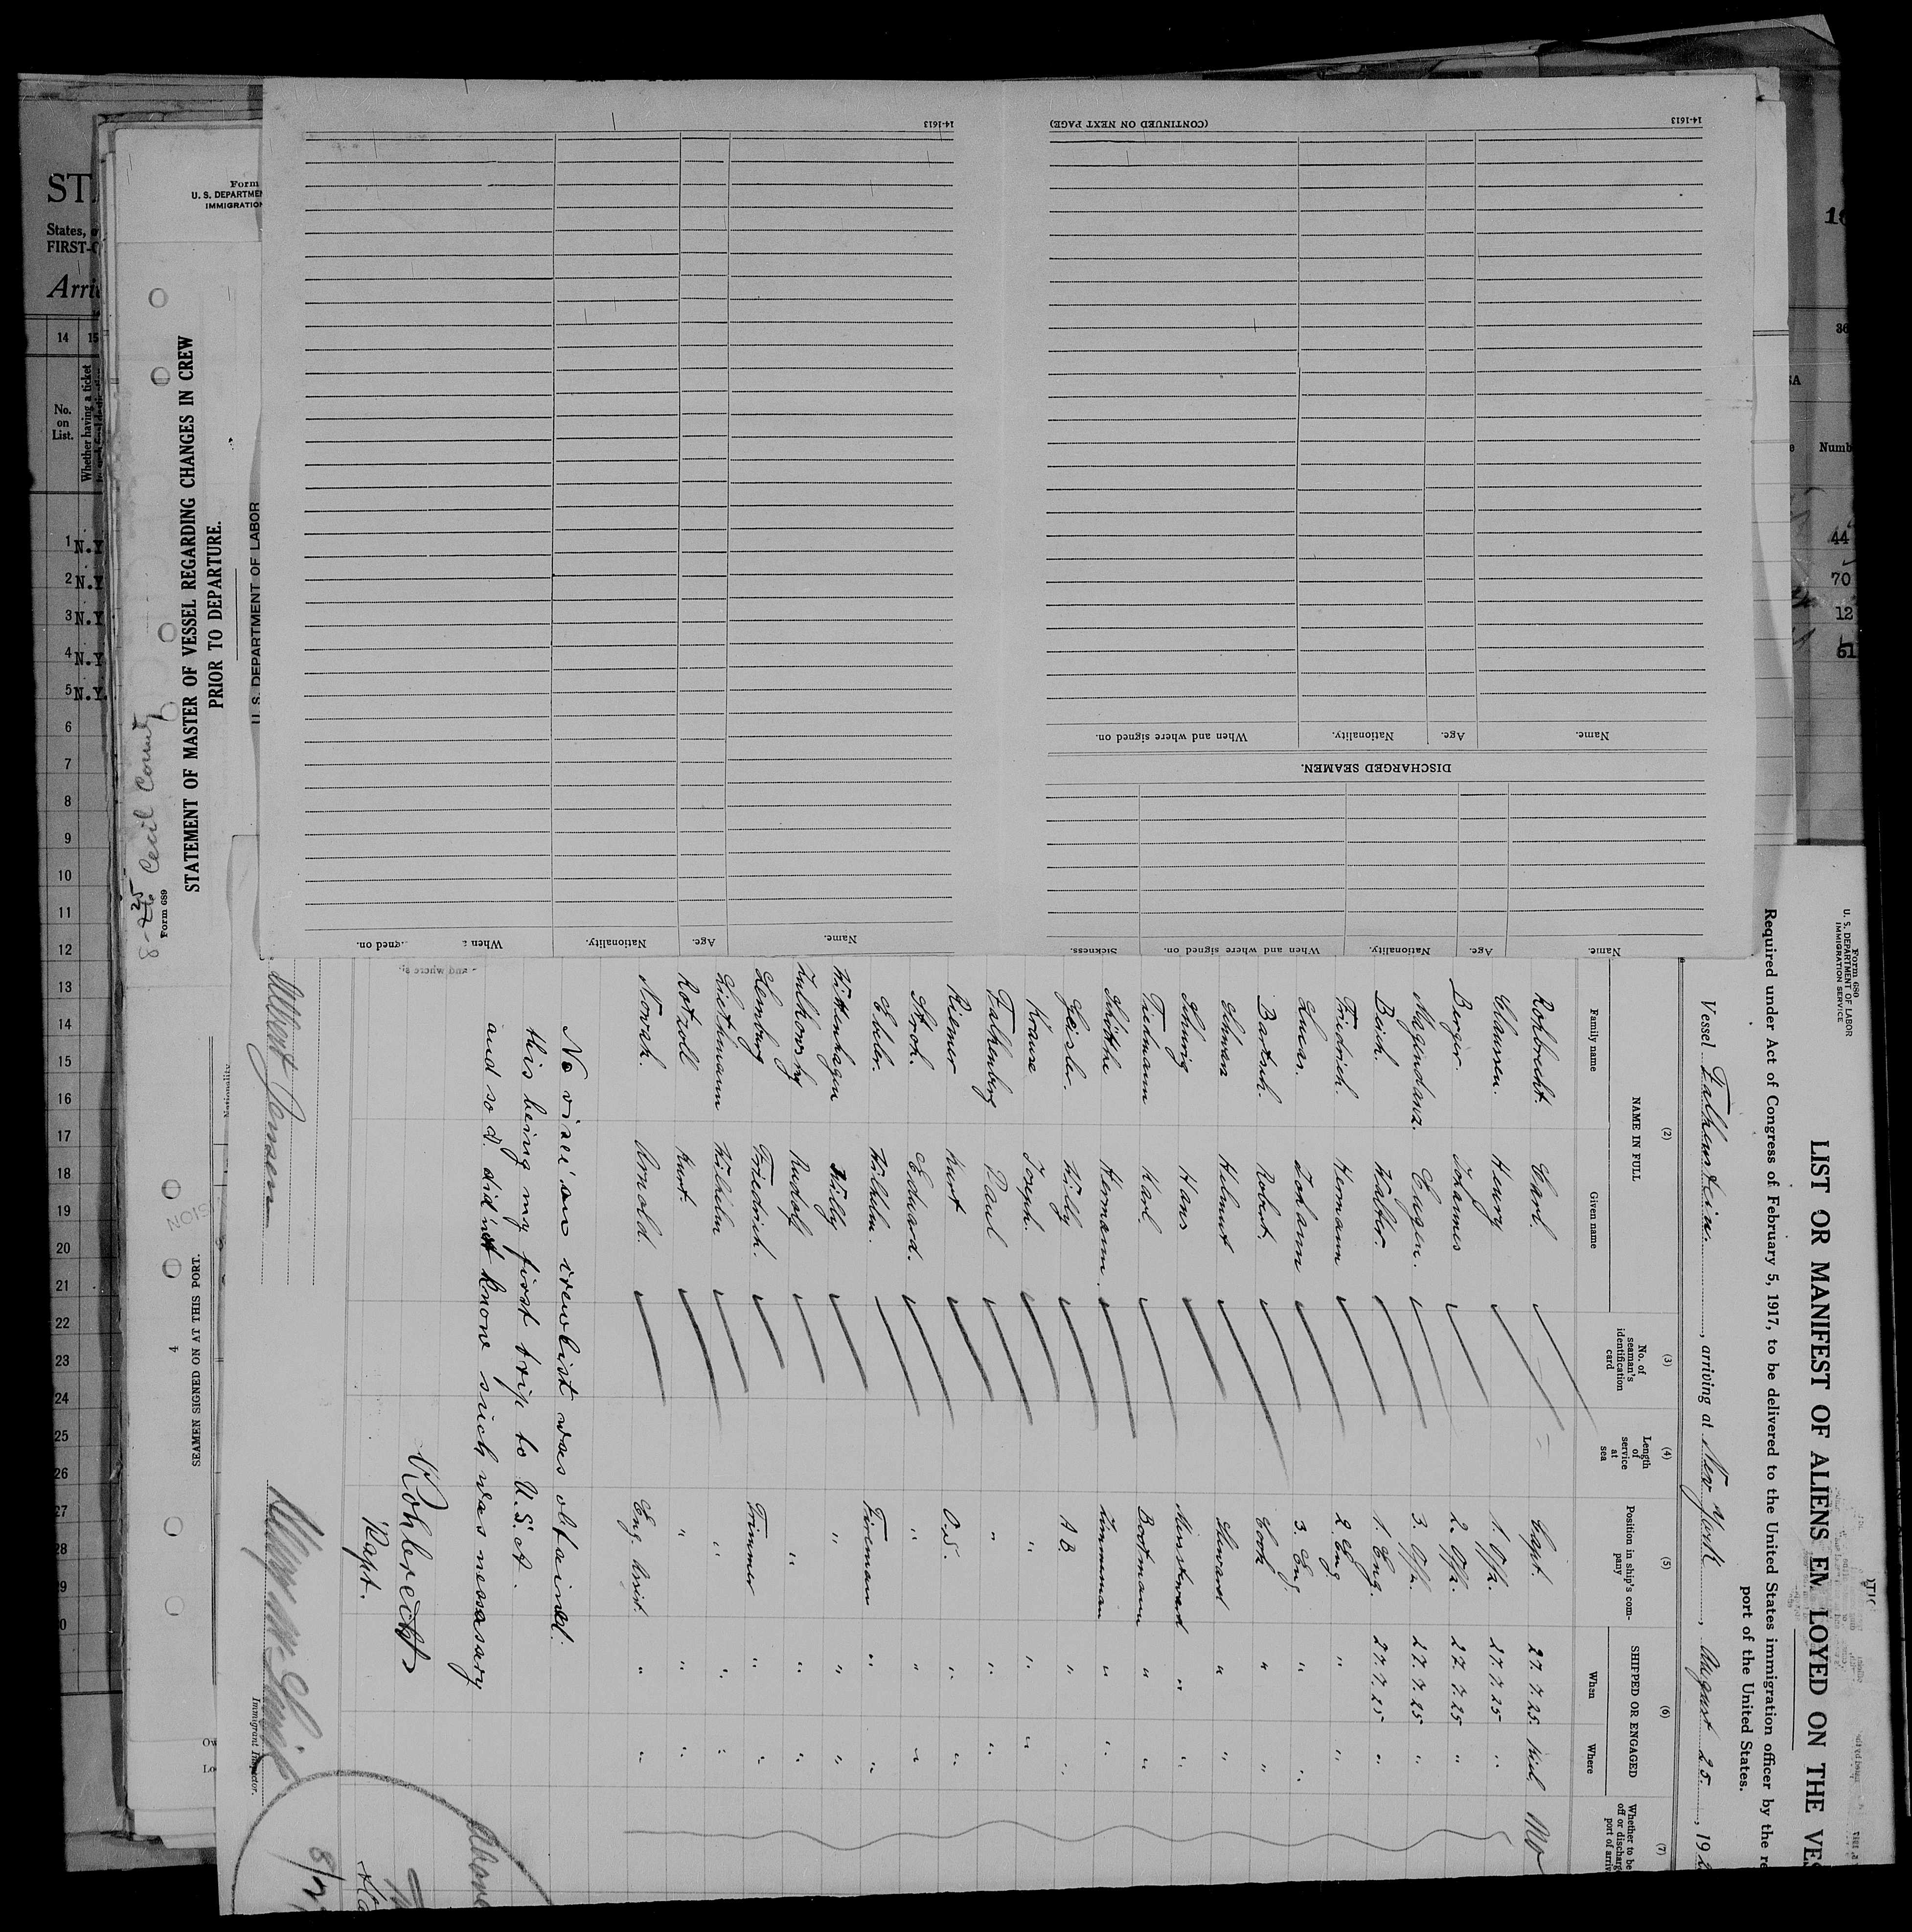 Form 680
U. S. DEPARTMENT OF LABOR
IMMIGRATION SERVICE
LIST OR MANIFEST OF ALIENS EM LOYED ON THE VES
Required under Act of Congress of February 5, 1917, to be delivered to the United States immigration officer by the re
port of the United States.
Vessel Falkenstein, arriving at New York, August 25, 192
(2) (3) (4) (5) (6) (7)
NAME IN FULL
Family name Given name
No. of seaman's identification card
Length of service at sea
Position in ship's company
SHIPPED OR ENGAGED
When Where
Whether to be
off or discharg
port of arriv
Rohbrecht. Carl. Capt. 27.7.25 Kiel No
Claussen. Henry 1. Offz. 27.7.25 "
Berger. Johannes 2. Offz. 27.7.25 "
Magendanz. Eugen. 3. Offz. 27.7.25 "
Beich. Walter. 1. Eng. 27.7.25 "
Friedrich. Hermann 2. Eng. " "
Lucas. Johann 3. Eng. " "
Bartsch. Robert. Cook " "
Schwarz Helmut Steward " "
Schurig Hans Messsteward " "
Tiedmann Karl. Bootmann " "
Schötthe Hermann. Zimmerman " "
Geisler. Willy A B " "
Krause Joseph. " " "
Falkenberg Paul " " "
Riemer Kurt O.S. " "
Stroh. Eduard. " " "
Ehler. Wilhelm. Fireman " "
Wittenhagen Willy " " "
Zulkowsky Rudolf " " "
Lemburg Friedrich. Trimmer " "
Liethmann Wilhelm " " "
Rotzoll Kurt. " " "
Novak. Arnold. Eng. Assist. " "
No viseé on crewlist was obtained.
this being my first trip to U.S.A.
and so d. did not know such was nessasary
Rohbrecht
Kapt.
Immigrant Inspector.
8/2
14-1613
(CONTINUED ON NEXT PAGE)
14-1613
Name. Age. Nationality. When and where signed on.
DISCHARGED SEAMEN.
Name. Age. Nationality. When and where signed on. Sickness.
Name. Age. Nationality. When a igned on.
and where si
Form
U. S. DEPARTMEN
IMMIGRATION
8-25 Cecil County
Form 689
STATEMENT OF MASTER OF VESSEL REGARDING CHANGES IN CREW
PRIOR TO DEPARTURE.
U. S. DEPARTMENT OF LABOR
Nationality.
Albert Jensen
SEAMEN SIGNED ON AT THIS PORT.
4
Ow
Lo
STA
States,
FIRST-C
Arri
14 15
No. on List.
Whether having a ticket
1 N.Y
2 N.Y
3 N.Y
4 N.Y
5 N.Y.
6
7
8
9
10
11
12
13
14
15
16
17
18
19
20
21
22
23
24
25
26
27
28
29
0
36
SA
Numb
44
70
12
61